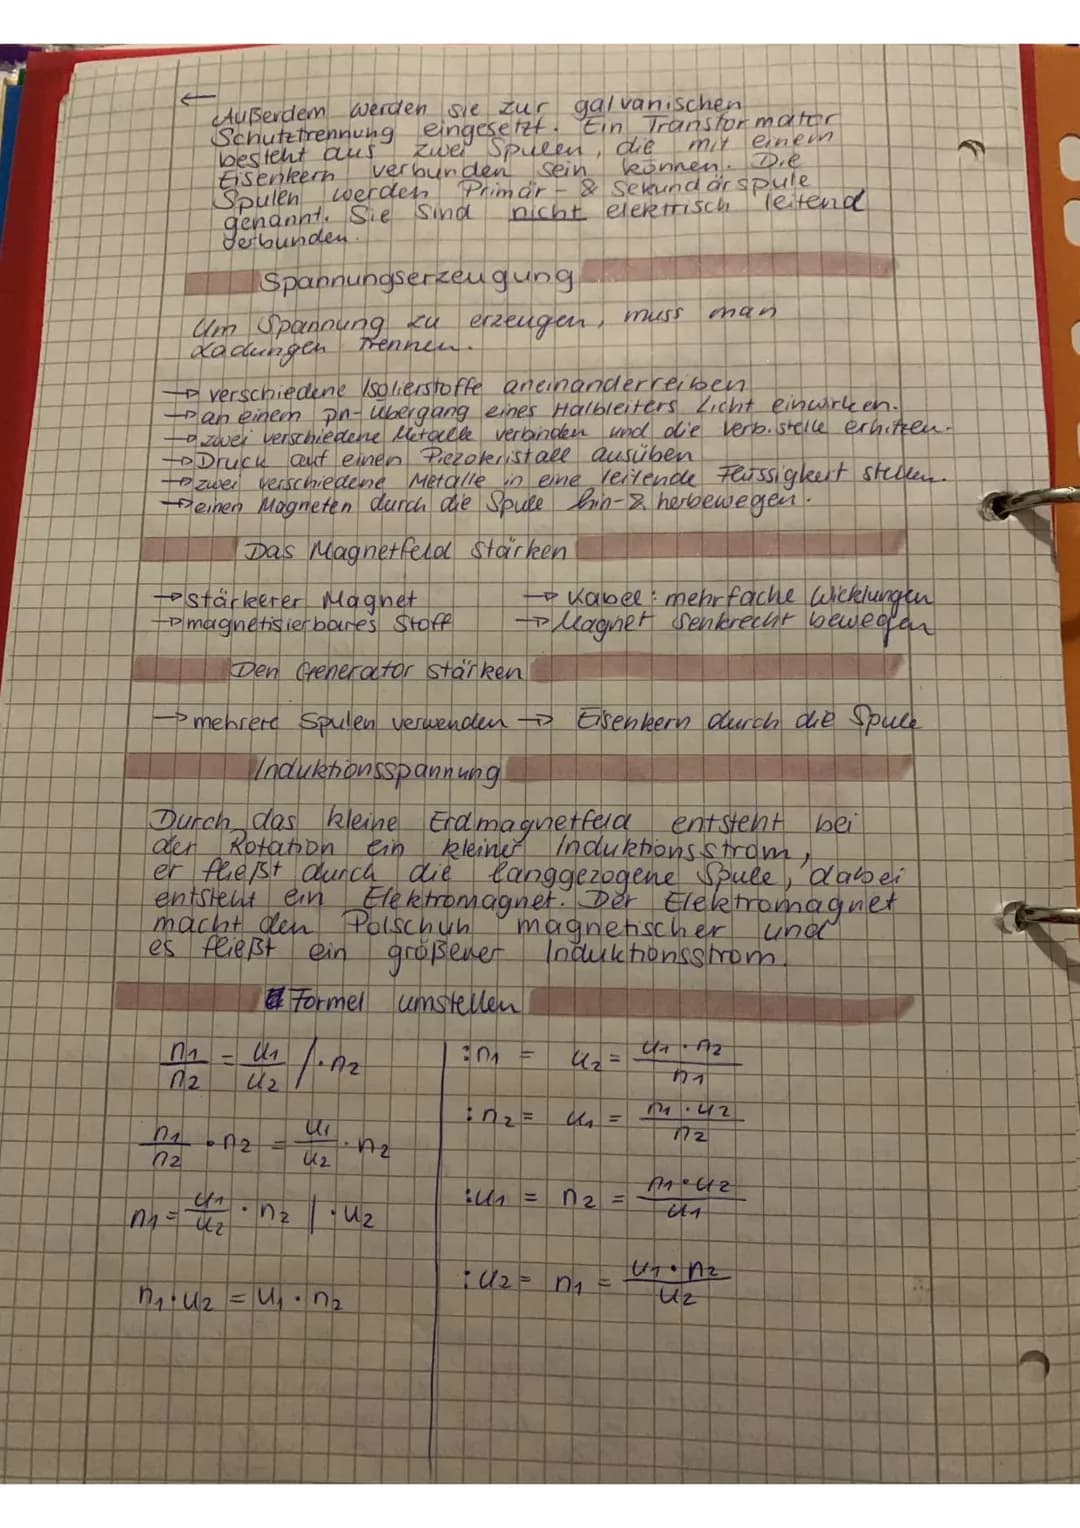 ←
Außerdem werden sie zur galvanischen
Schutztrennung eingesetzt. Ein Transformator
besteht aus zwei Spulen, die mit einem
Eisenkern verbunden sein können. Die
Spulen werden Primär- & Sekundärspule
genannt. Sie sind nicht elektrisch leitend
verbunden.
Spannungserzeugung
Um Spannung zu erzeugen, muss man
Ladungen trennen.
→ verschiedene Isolierstoffe aneinanderreiben
→ an einem pn-Übergang eines Halbleiters Licht einwirken.
→ zwei verschiedene Metalle verbinden und die Verb.stelle erhitzen.
→ Druck auf einen Piezokristall ausüben
→ zwei verschiedene Metalle in eine leitende Flüssigkeit stellen.
→ einen Magneten durch die Spule hin- & herbewegen.
Das Magnetfeld stärken
→ stärkerer Magnet → Kabel: mehrfache Wicklungen
→ magnetisierbares Stoff → Magnet senkrecht bewegen
Den Generator stärken
→ mehrere Spulen verwenden → Eisenkern durch die Spule
Induktionsspannung
Durch das kleine Erdmagnetfeld entsteht bei
der Rotation ein kleiner Induktionsstrom,
er fließt durch die langgezogene Spule, dabei
entsteht ein Elektromagnet. Der Elektromagnet
macht den Polschuh magnetischer und
es fließt ein größerer Induktionsstrom.
Formel umstellen
n1/n2 = U1/U2 / · n2
n1/n2 · n2 = U1/U2 · n2
n1 = U1/U2 · n2 | · U2
n1 · U2 = U1 · n2
: n1 = U2 = U1 · n2/n1
: n2 = U1 = n1 · U2/n2
: U1 = n2 = n1 · U2/U1
: U2 = n1 = U1 · n2/U2